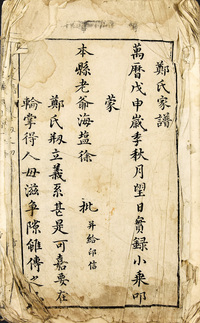 鄭氏家譜
萬曆戊申歲季秋月望日實錄小乘叩
蒙
本縣老爺海塩徐 批 并給印信
鄭氏刱立義系甚是可嘉要在
輪掌得人毋滋爭隙雖傳之